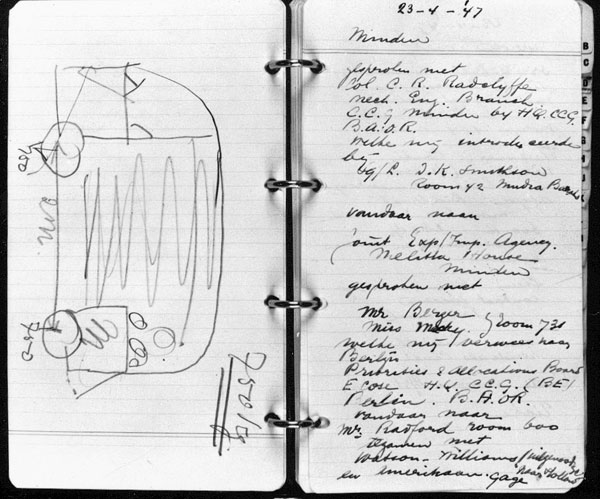 750
750
750 kg
23-4-'47
Minden
gesproken met
Col. C. R. Radclyffe
Mech. Eng. Branch
C.C.G. Minden by H.Q. CCG.
B.A.O.R.
welke mij introduceerde
bij
J.K. Smithson
Room 42
vandaar naar
Joint Exp/Imp. Agency.
Melitta House
Minden
gesproken met
Mr Berger
Miss room 731
welke mij verwees naar
Berlijn
Priorities & Allocations Board
H.Q. CCG. (BE)
Berlin. B.A.O.R.
vandaar naar
Mr. Radford room 600
samen met
Watson-Williams
naar Holland
en Amerikaan Gage
B
C
D
E
F